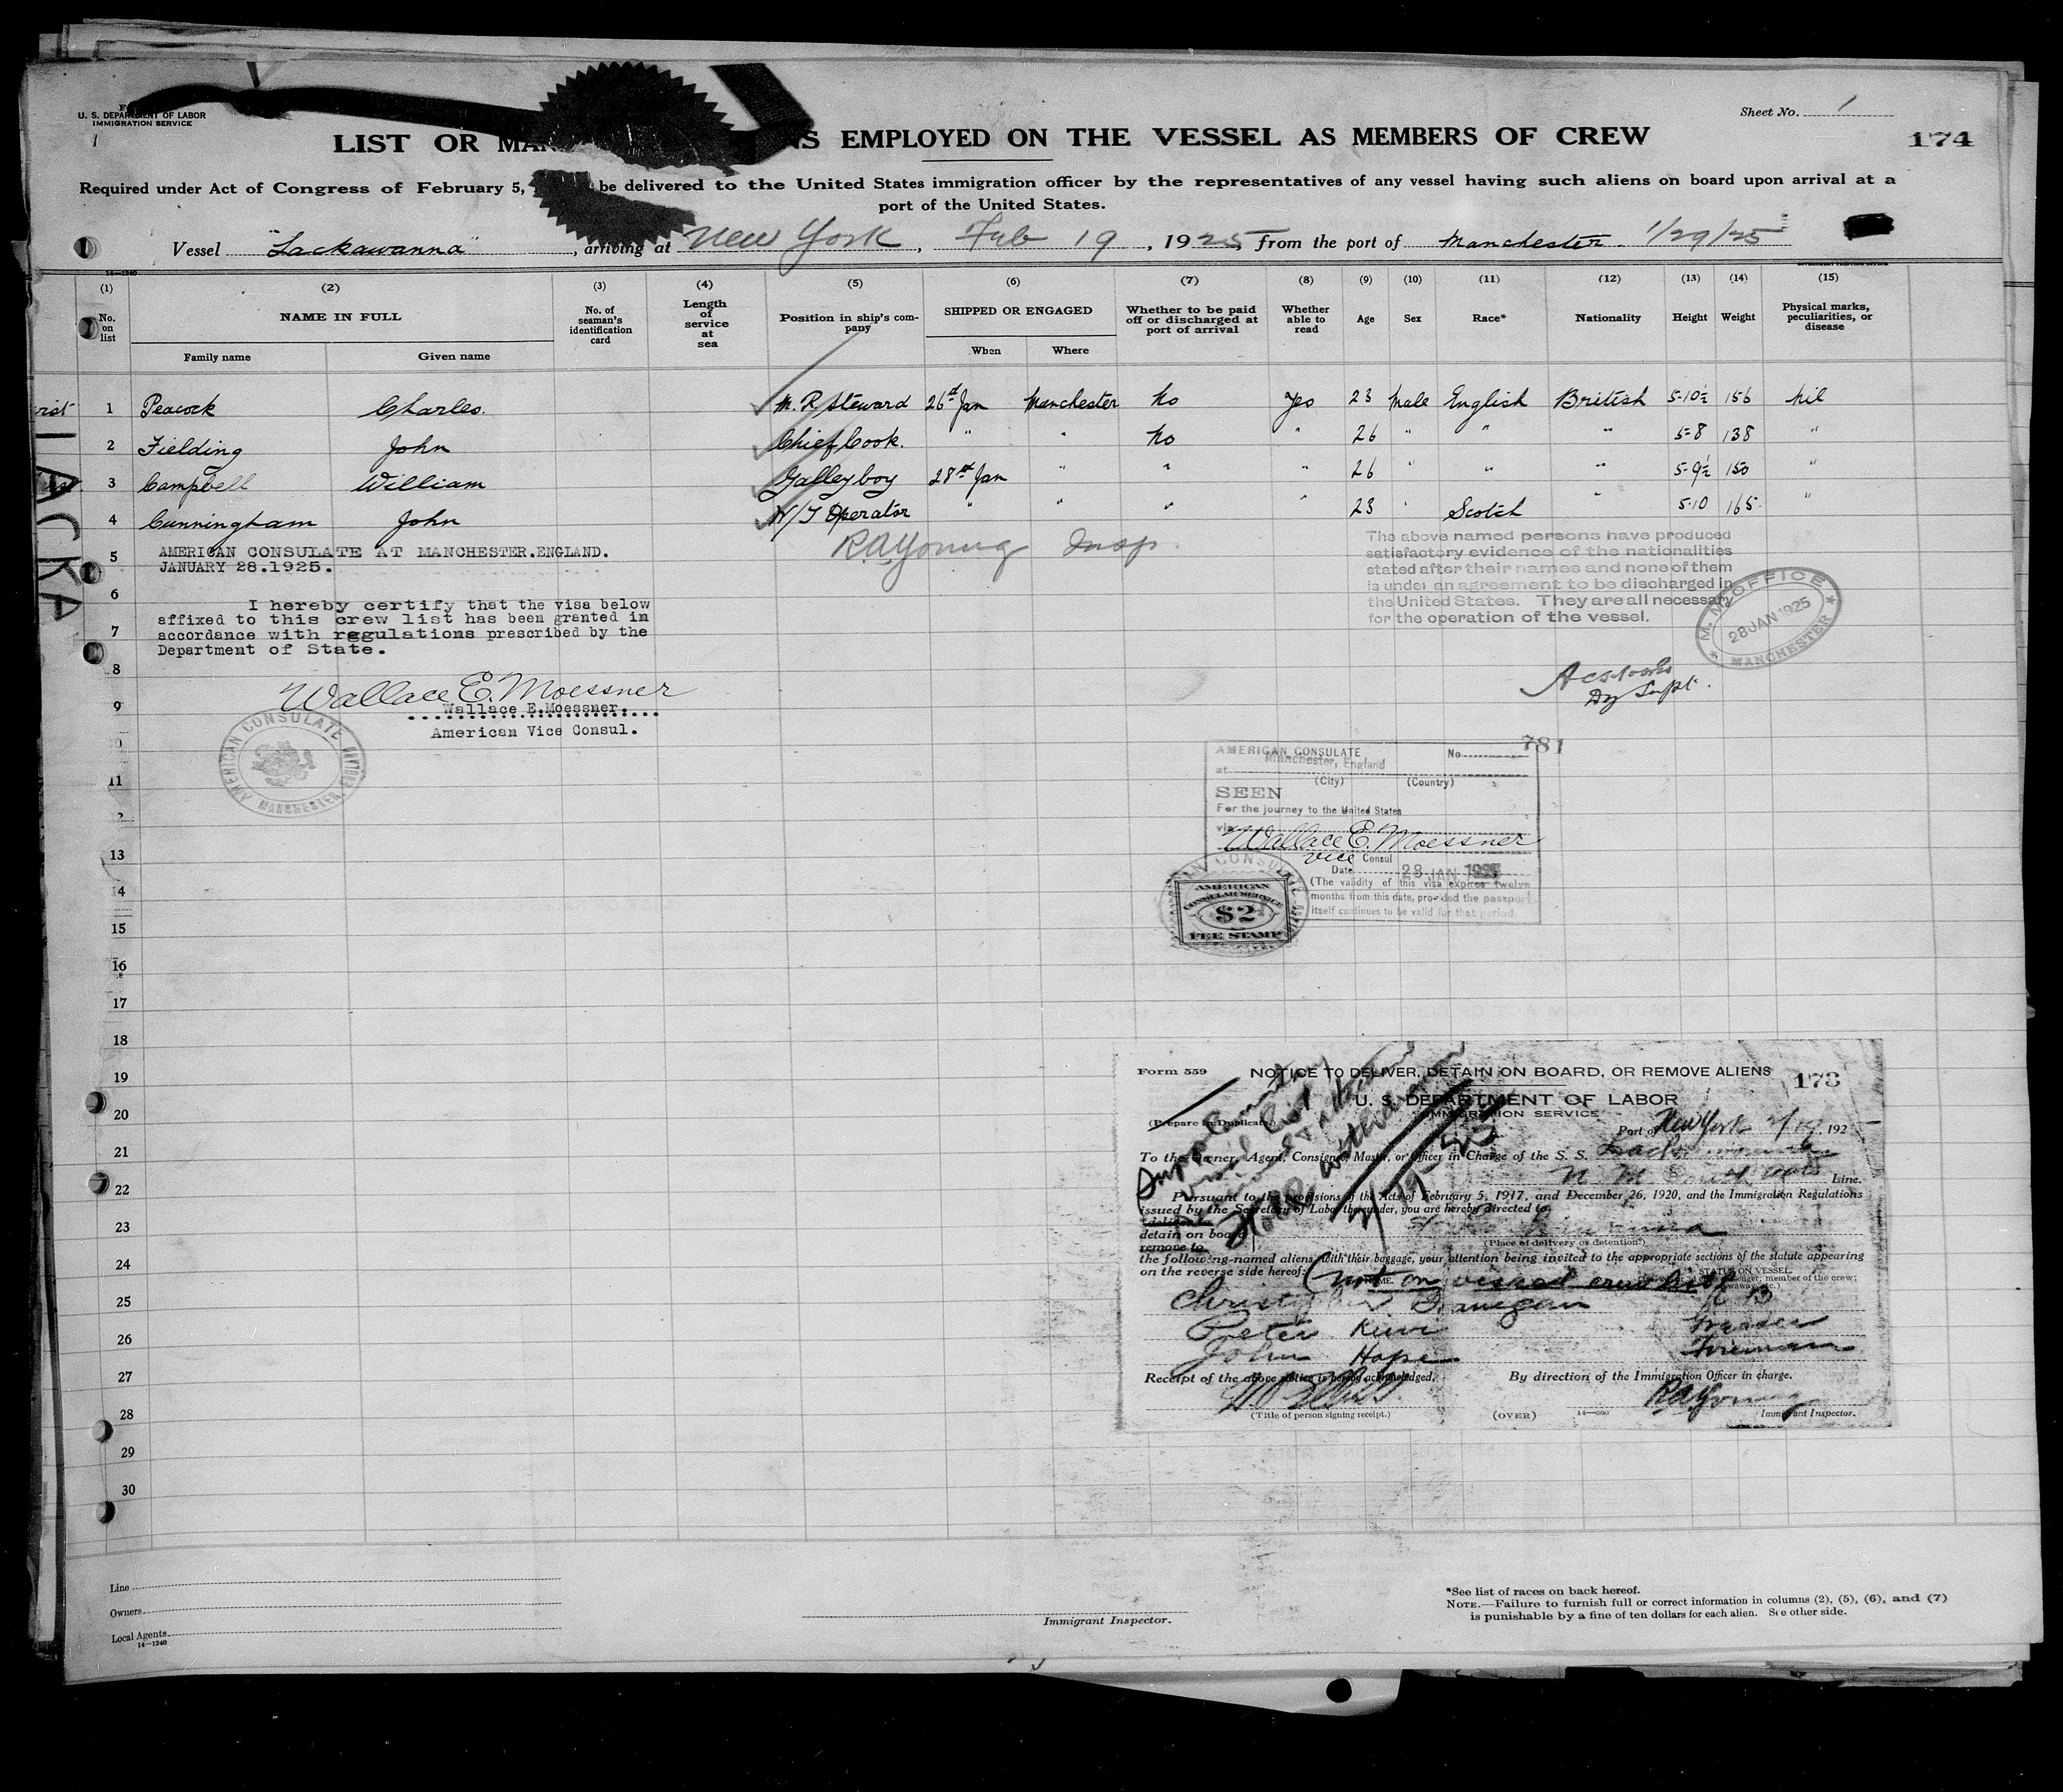 U. S. DEPARTMENT OF LABOR
IMMIGRATION SERVICE
1
Sheet No. 1
LIST OR EMPLOYED ON THE VESSEL AS MEMBERS OF CREW
174
Required under Act of Congress of February 5, be delivered to the United States immigration officer by the representatives of any vessel having such aliens on board upon arrival at a
port of the United States.
Vessel "Lackawanna", arriving at New York, Feb 19, 1925, from the port of Manchester 1/29/25
14—1240
(1) (2) (3) (4) (5) (6) (7) (8) (9) (10) (11) (12) (13) (14) (15)
No. on list
NAME IN FULL
Family name Given name
No. of seaman's identification card
Length of service at sea
Position in ship's company
SHIPPED OR ENGAGED
When Where
Whether to be paid off or discharged at port of arrival
Whether able to read
Age Sex Race* Nationality Height Weight
Physical marks, peculiarities, or disease
1 Peacock Charles. M. R. Steward 26th Jan Manchester No Yes 23 Male English British 5-10½ 156 Nil
2 Fielding John Chief Cook. " " No " 26 " " " 5-8 138 "
3 Campbell William Galley boy 28th Jan " " " 26 " " " 5-9½ 150 "
4 Cunningham John W/T Operator " " " " 23 " Scotch " 5-10 165 "
LACKA
5
AMERICAN CONSULATE AT MANCHESTER.ENGLAND.
JANUARY 28.1925.
RA Young Insp.
The above named persons have produced
satisfactory evidence of the nationalities
stated after their names and none of them
is under an agreement to be discharged in
the United States. They are all necessary
for the operation of the vessel.
M. M. OFFICE
28 JAN 1925
MANCHESTER
6
I hereby certify that the visa below
affixed to this crew list has been granted in
7
accordance with regulations prescribed by the
Department of State.
8
Dy Supt.
Wallace E. Moessner
9
Wallace E.Moessner.
American Vice Consul.
AMERICAN CONSULATE
MANCHESTER
10
11
AMERICAN CONSULATE No. 781
at Manchester, England
(City) (Country)
SEEN
For the journey to the United States
via
Wallace E. Moessner
Vice Consul
Date 28 JAN 1925
(The validity of this visa expires twelve
months from this date, provided the passport
itself continues to be valid for that period.
AMERICAN
CONSULAR SERVICE
$2
FEE STAMP
12
13
14
15
16
17
18
19
20
21
22
23
24
25
26
27
28
29
30
Form 559 NOTICE TO DELIVER, DETAIN ON BOARD, OR REMOVE ALIENS 173
U. S. DEPARTMENT OF LABOR
IMMIGRATION SERVICE
(Prepare in Duplicate)
Port of New York 2/19, 1925
To the Owner, Agent, Consignee, Master, or Officer in Charge of the S. S.
Line.
Pursuant to the provisions of the Acts of February 5, 1917, and December 26, 1920, and the Immigration Regulations
issued by the Secretary of Labor thereunder, you are hereby directed to
deliver to
detain on board
remove to
(Place of delivery or detention)
the following-named aliens, with their baggage, your attention being invited to the appropriate sections of the statute appearing
on the reverse side hereof:
NAME. STATUS ON VESSEL
(not on vessel crew list)
Peter
John Hope Fireman
Receipt of the above notice is hereby acknowledged. By direction of the Immigration Officer in charge.
RA Young
(Title of person signing receipt.) (OVER) Immigrant Inspector.
Line
Owners
Local Agents
14—1240
Immigrant Inspector.
*See list of races on back hereof.
NOTE.—Failure to furnish full or correct information in columns (2), (5), (6), and (7)
is punishable by a fine of ten dollars for each alien. See other side.